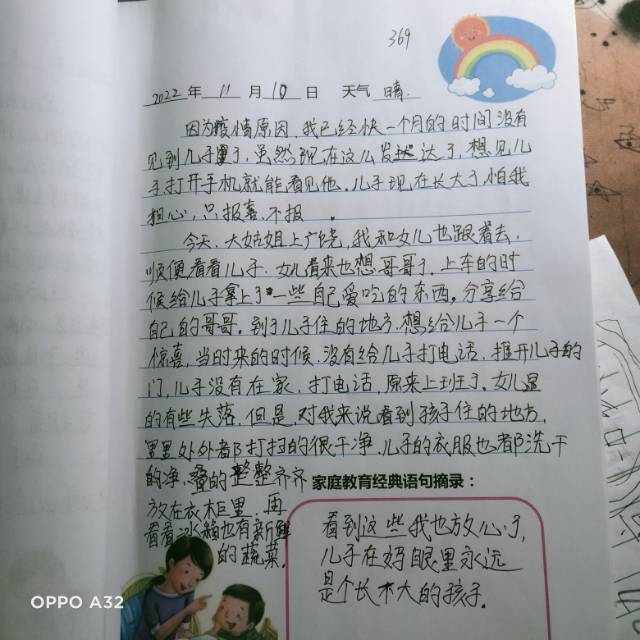 369
2022 年 11 月 10 日 天气 晴
因为疫情原因,我已经快一个月的时间没有
见到儿子里了,虽然现在这么发达了,想见儿
子打开手机就能看见他。儿子现在长大了,怕我
担心,只报喜,不报 。
今天,大姑姐上广饶,我和女儿也跟着去,
顺便看看儿子,女儿看来也想哥哥了,上车的时
候给儿子拿上了一些自己爱吃的东西。分享给
自己的哥哥。到了儿子住的地方,想给儿子一个
惊喜,当时来的时候,没有给儿子打电话,推开儿子的
门,儿子没有在家,打电话,原来上班了。女儿显
的有些失落,但是,对我来说看到孩子住的地方,
里里处外都打扫的很干净,儿子的衣服也都洗干
的净,叠的整整齐齐
放在衣柜里,再
看看冰箱也有新鲜
的蔬菜。
家庭教育经典语句摘录:
看到这些我也放心了,
儿子在妈眼里永远
是个长不大的孩子。
OPPO A32